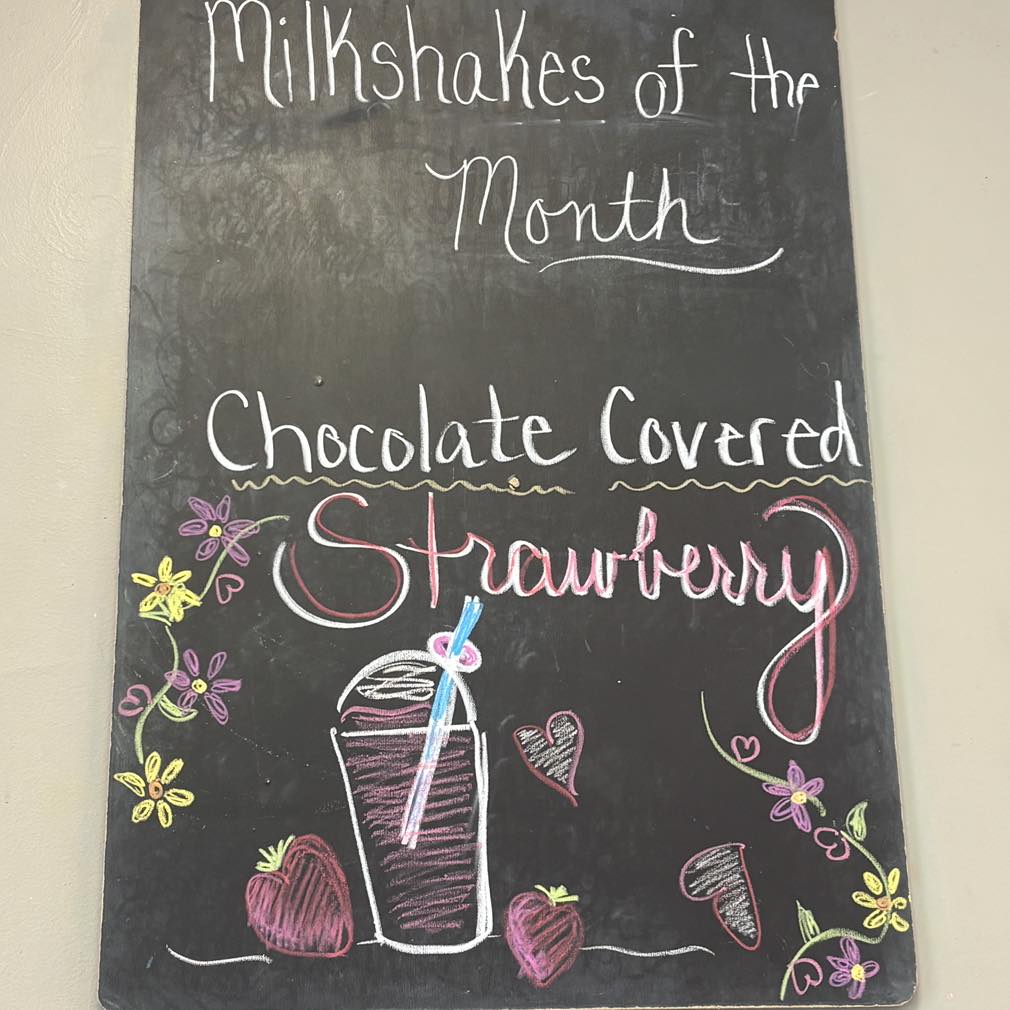 Milkshakes of the
Month
Chocolate Covered
Strawberry